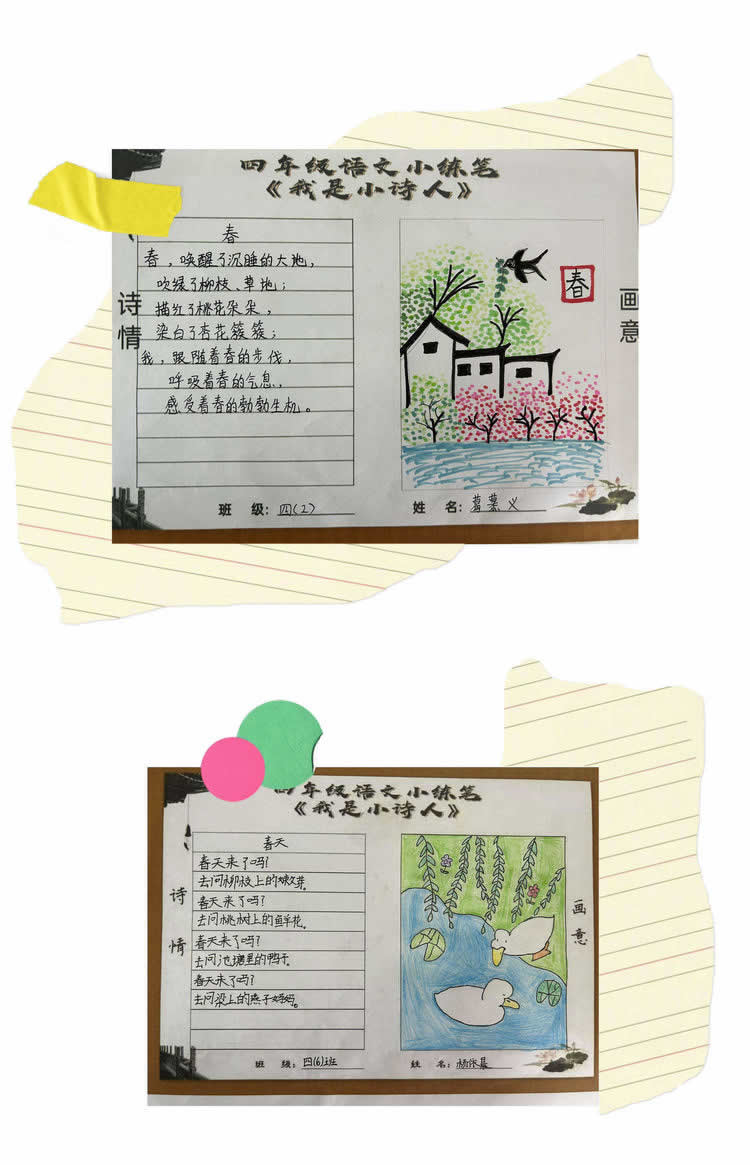 四年级语文小练笔
《我是小诗人》
诗情
春
春，唤醒了沉睡的大地，
吹绿了柳枝、草地；
描红了桃花朵朵，
染白了杏花簇簇；
我，跟随着春的步伐，
呼吸着春的气息，
感受着春的勃勃生机。
春
画意
班 级：四（2）
姓 名：葛慕义
四年级语文小练笔
《我是小诗人》
诗情
春天
春天来了吗？
去问柳枝上的嫩芽。
春天来了吗？
去问桃树上的鲜花。
春天来了吗？
去问池塘里的鸭子。
春天来了吗？
去问梁上的燕子妈妈。
画意
班 级：四（6）班
姓 名：杨依